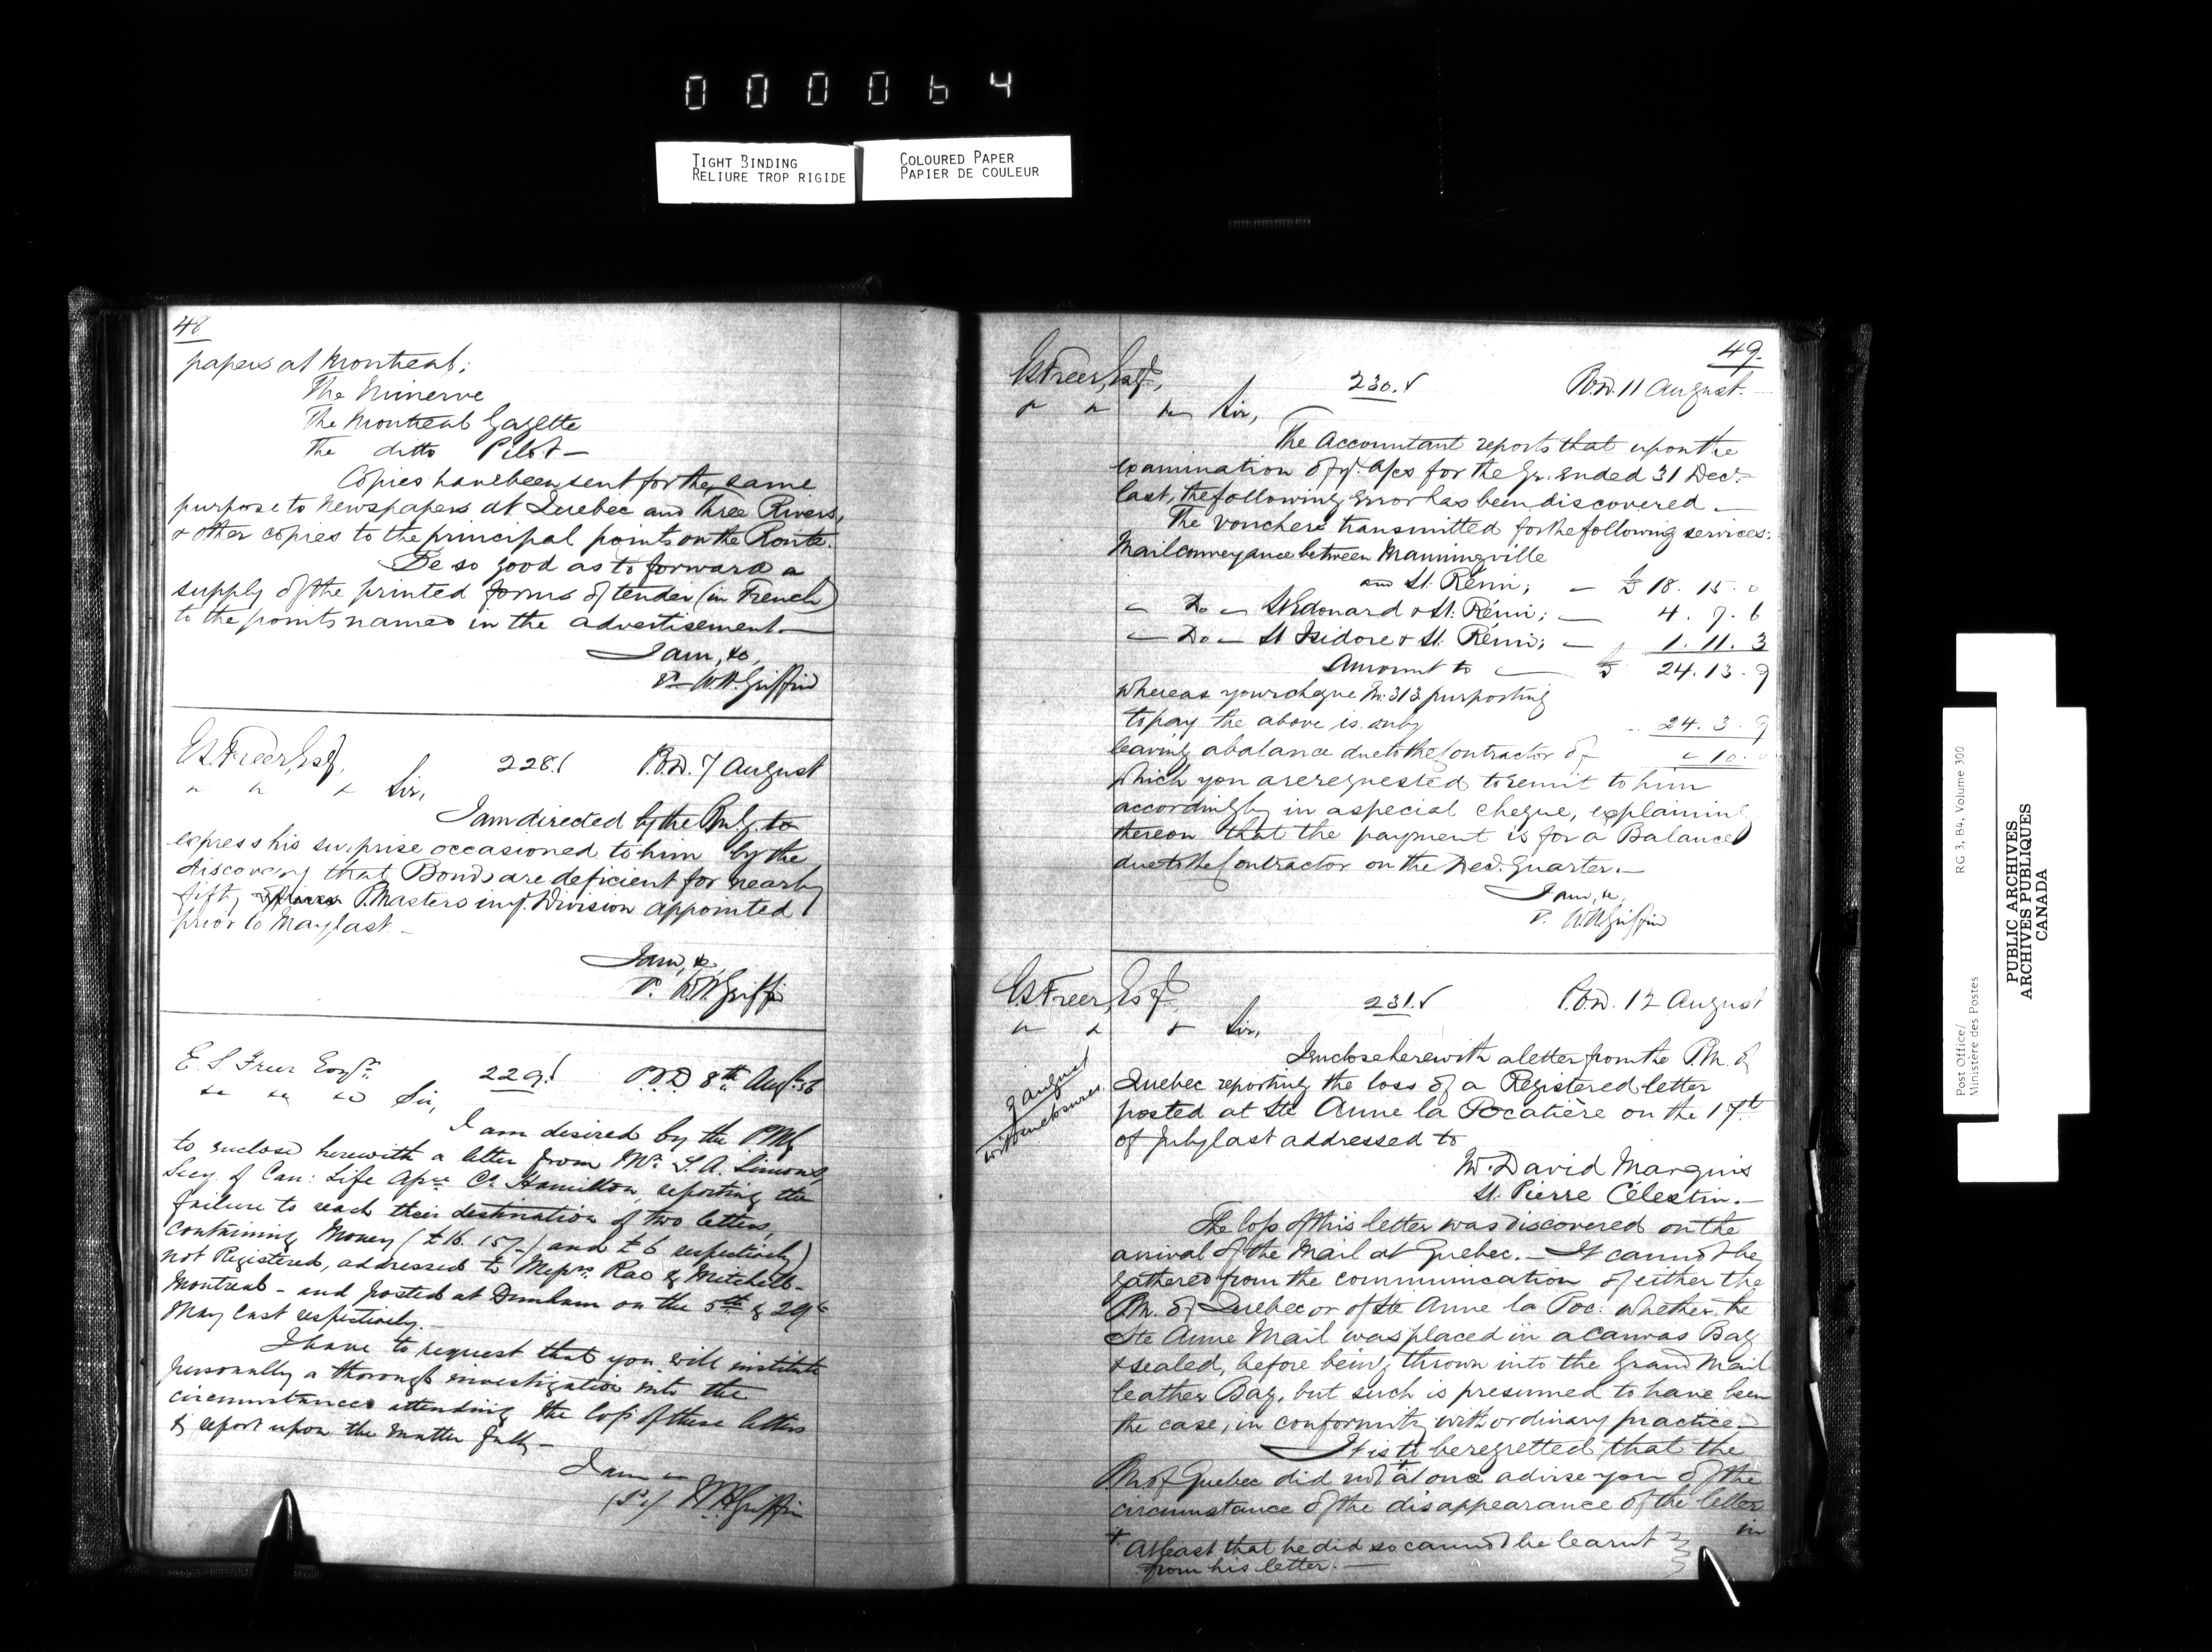 000064
TIGHT BINDING
RELIURE TROP RIGIDE
COLOURED PAPER
PAPIER DE COULEUR
48
papers at Montreal;
The Minerve
The Montreal Gazette
The ditto Pilot —
Copies have been sent for the same
purpose to Newspapers at Quebec and Three Rivers,
& other copies to the principal points on the Route.
Be so good as to forward a
supply of the printed forms of tender (in French)
to the points named in the advertisement. —
I am, &c,
W.H. Griffin
E.S. Freer, Esq.
228. P.O.D. 7 August
Sir,
I am directed by the P.M.G. to
express his surprise occasioned to him by the
discovery that Bonds are deficient for nearly
fifty P. Masters in yr. Division appointed
prior to May last. —
I am, &c,
W.H. Griffin
E. S. Freer Esqre.
229. P.O.D 8th Augt. 56
Sir,
I am desired by the PMG
to enclose herewith a letter from Mr. T. A. Simons,
Secy. of Can: Life Assce Co. Hamilton, reporting the
failure to reach their destination of two letters,
containing Money (£16. 15/-) and £6 respectively)
not Registered, addressed to Messrs. Rae & Mitchell -
Montreal - and posted at Dunham on the 5th & 29th
May last respectively. —
I have to request that you will institute
personally a thorough investigation into the
circumstances attending the loss of these letters
& report upon the matter fully —
I am
W.H. Griffin
49.
E.S. Freer, Esq.,
230. P.O.D. 11 August. —
Sir,
The Accountant reports that upon the
examination of yr. a/cs for the Qr. ended 31 Decr.
last, the following error has been discovered —
The vouchers transmitted for the following services:
Mail conveyance between Manningville
and St. Rémi; — £ 18. 15. 0
— Do — St Edouard & St. Rémi; — 4. 7. 6
— Do — St Isidore & St. Rémi; — 1. 11. 3
Amount to — £ 24. 13. 9
Whereas your cheque No. 313 purporting
to pay the above is only 24. 3. 9
leaving a balance due to the Contractor of " 10. 0
Which you are requested to remit to him
accordingly in a special cheque, explaining
thereon that the payment is for a Balance
due to the Contractor on the Dec. Quarter. —
I am, &c,
W.H. Griffin
E.S. Freer, Esq.
231. P.O.D. 12 August
Sir,
9 August
with enclosures.
I enclose herewith a letter from the P.M. of
Quebec reporting the loss of a Registered letter
posted at Ste Anne la Pocatière on the 17th
of July last addressed to
Mr. David Marquis
St. Pierre Célestin. —
The loss of this letter was discovered on the
arrival of the Mail at Quebec. — It cannot be
gathered from the communication of either the
P.M. of Quebec or of Ste Anne la Poc: whether the
Ste Anne Mail was placed in a Canvas Bag
& sealed, before being thrown into the Grand Mail
leather Bag, but such is presumed to have been
the case, in conformity with ordinary practice. —
It is to be regretted that the
P.M. of Quebec did not + at once advise you of the
circumstance of the disappearance of the letter
in
+ At least that he did so cannot be learnt
from his letter. —
Post Office/
Ministère des Postes
RG 3, B4, Volume 300
PUBLIC ARCHIVES
ARCHIVES PUBLIQUES
CANADA